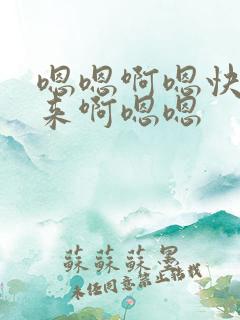 嗯嗯啊嗯快
来啊嗯嗯
蘇蘇蘇墨
未经同意禁止转载